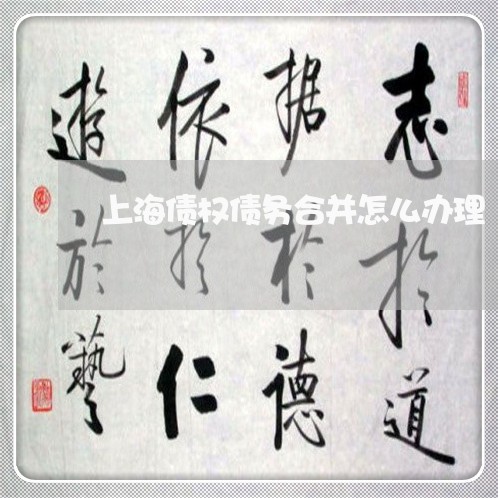 志於道
据於德
依於仁
遊於藝
上海债权债务合并怎么办理